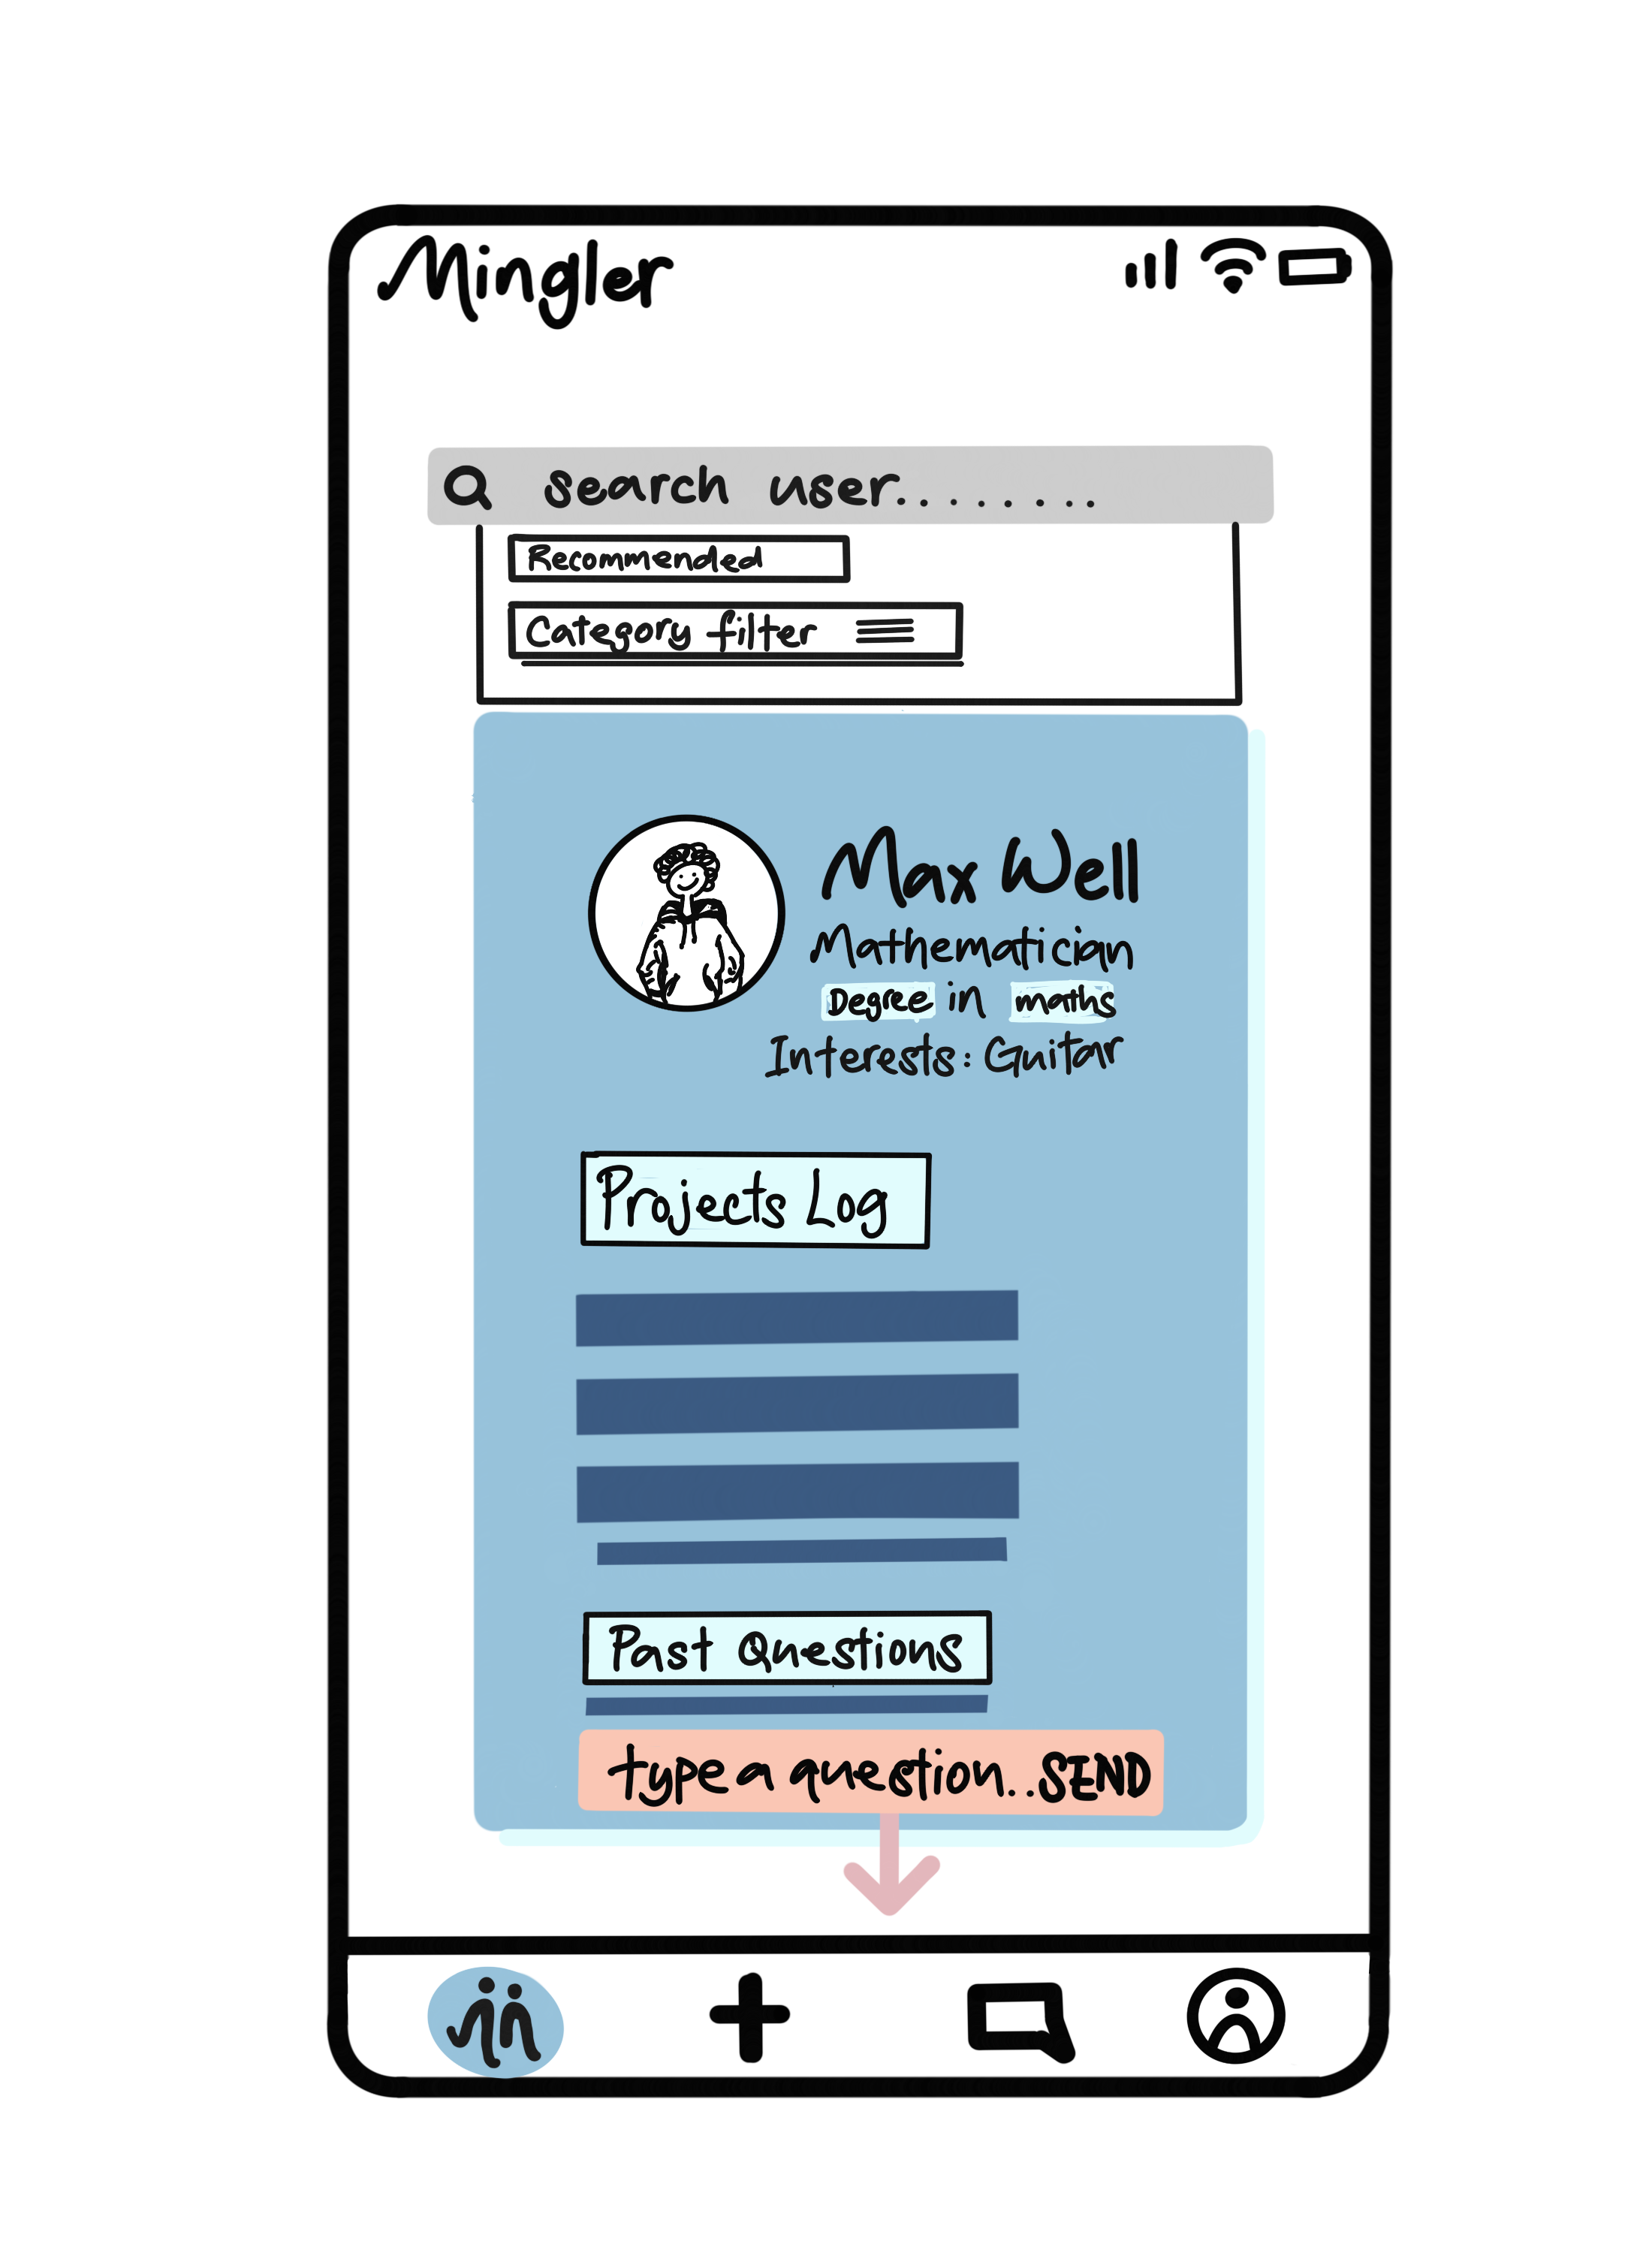 Mingler
search user........
Recommended
Category filter
Max Well
Mathematician
Degree in maths
Interests: Guitar
Projects Log
Past Questions
type a question.. SEND